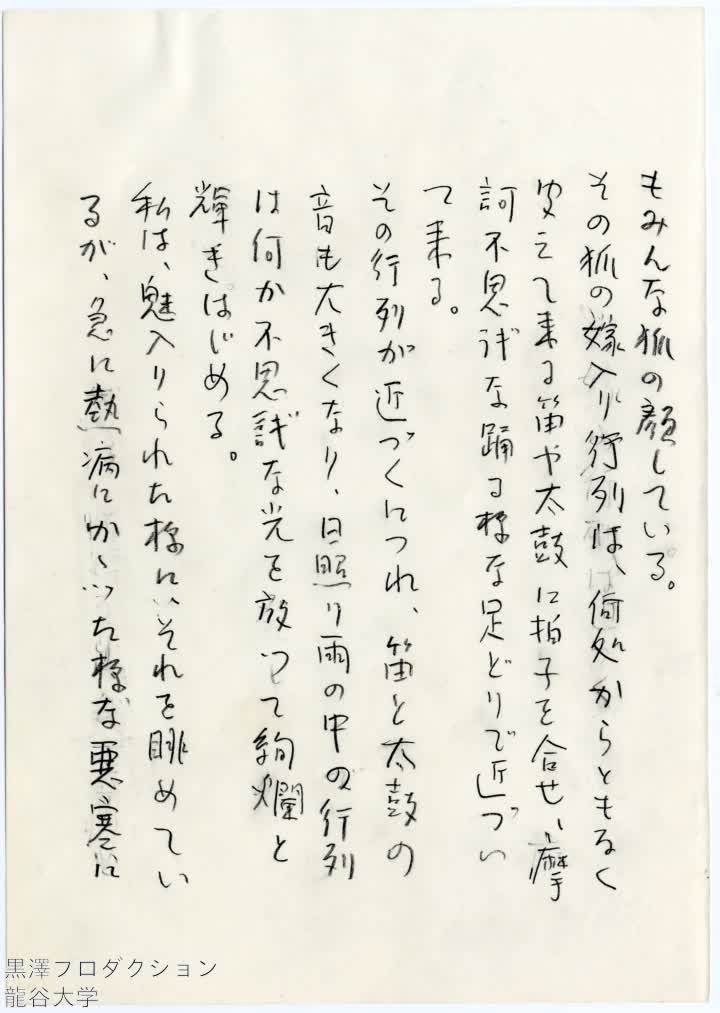 もみんな狐の顔している。
その狐の嫁入り行列は、何処からともなく
聞えて来る笛や太鼓に拍子を合せ、摩
訶不思議な踊る様な足どりで近づい
て来る。
その行列が近づくにつれ、笛と太鼓の
音も大きくなり、日照り雨の中の行列
は何か不思議な光を放って絢爛と
輝きはじめる。
私は、魅入りられた様に、それを眺めてい
るが、急に熱病にかゝった様な悪寒に
黒澤プロダクション
龍谷大学